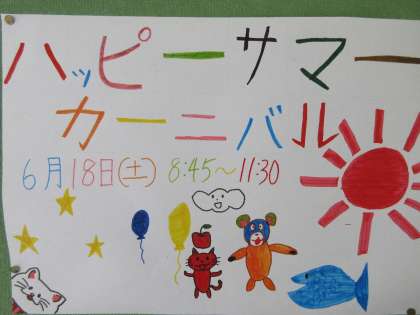 ハッピーサマー
カーニバル
6月18日(土) 8:45〜11:30